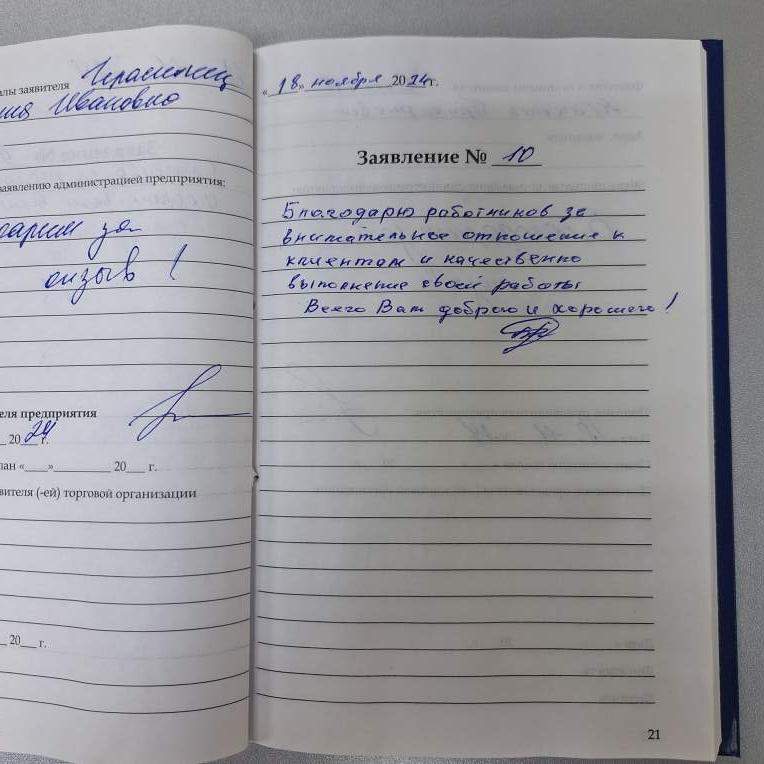 лы заявителя
Ивановна
заявлению администрацией предприятия:
за
отзыв!
еля предприятия
20 24 г.
лан «___»________ 20___ г.
вителя (-ей) торговой организации
20___ г.
«18» ноября 2024г.
Заявление № 10
Благодарю работников за
внимательное отношение к
клиентам и качественно
выполнение своей работы
Всего Вам доброго и хорошего!
21